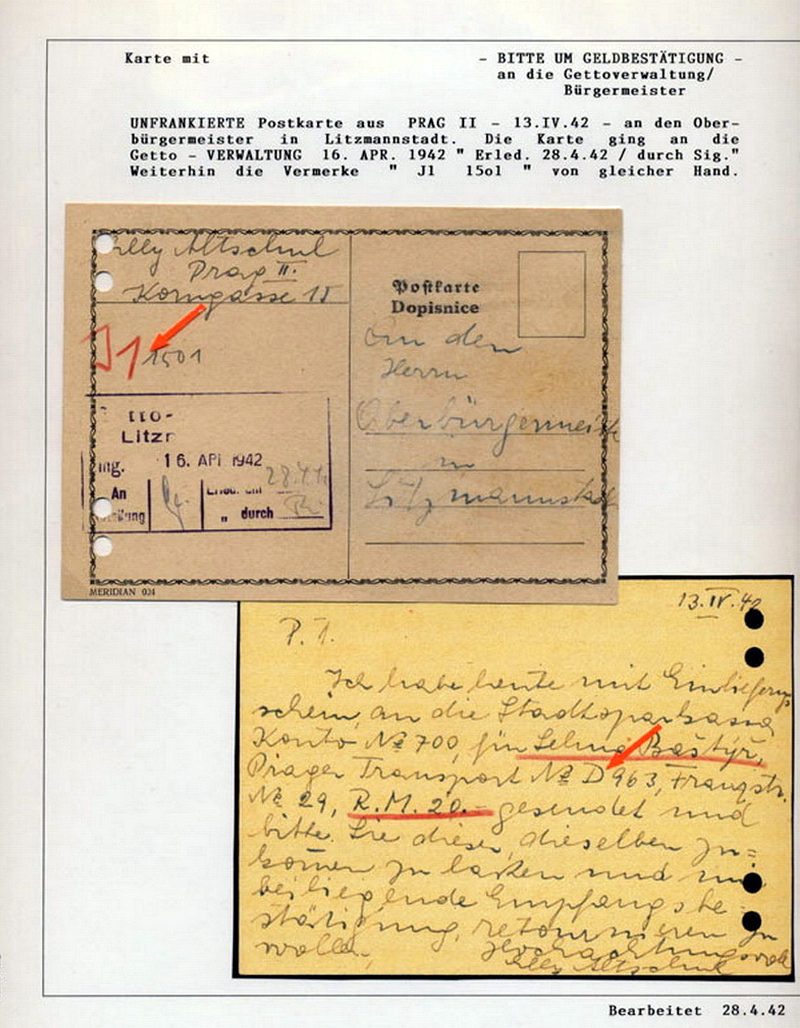 Karte mit
- BITTE UM GELDBESTÄTIGUNG -
an die Gettoverwaltung/
Bürgermeister
UNFRANKIERTE Postkarte aus PRAG II - 13.IV.42 - an den Ober-
bürgermeister in Litzmannstadt. Die Karte ging an die
Getto - VERWALTUNG 16. APR. 1942 " Erled. 28.4.42 / durch Sig."
Weiterhin die Vermerke " J1 15o1 " von gleicher Hand.
Altschul
Prag II.
Korngasse 15
J1 1501
tto-
Litzr
ing. 16. API 1942
An
teilung
" durch
MERIDIAN 024
Postkarte
Dopisnice
An den
Herrn
Oberbürgermeist
in
Litzmannstadt
13.IV.42
P. T.
Ich habe heute mit Einlieferungs
schein, an die Stadtsparkassa
Konto № 700, für Selma Baštýř,
Prager Transport № D 963, Franzstr.
№ 29, R.M. 20.- gesendet und
bitte Sie dieser, dieselben zu=
komen zu lassen und mir
beiliegende Empfangsbe-
stätigung, retournieren zu
wollen, Hochachtungsvoll
Altschul
Bearbeitet 28.4.42